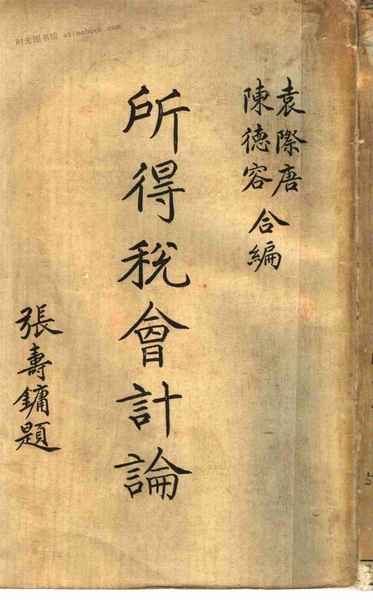 袁際唐
陳德容
合編
所得稅會計論
張壽鏞題
时光图书馆